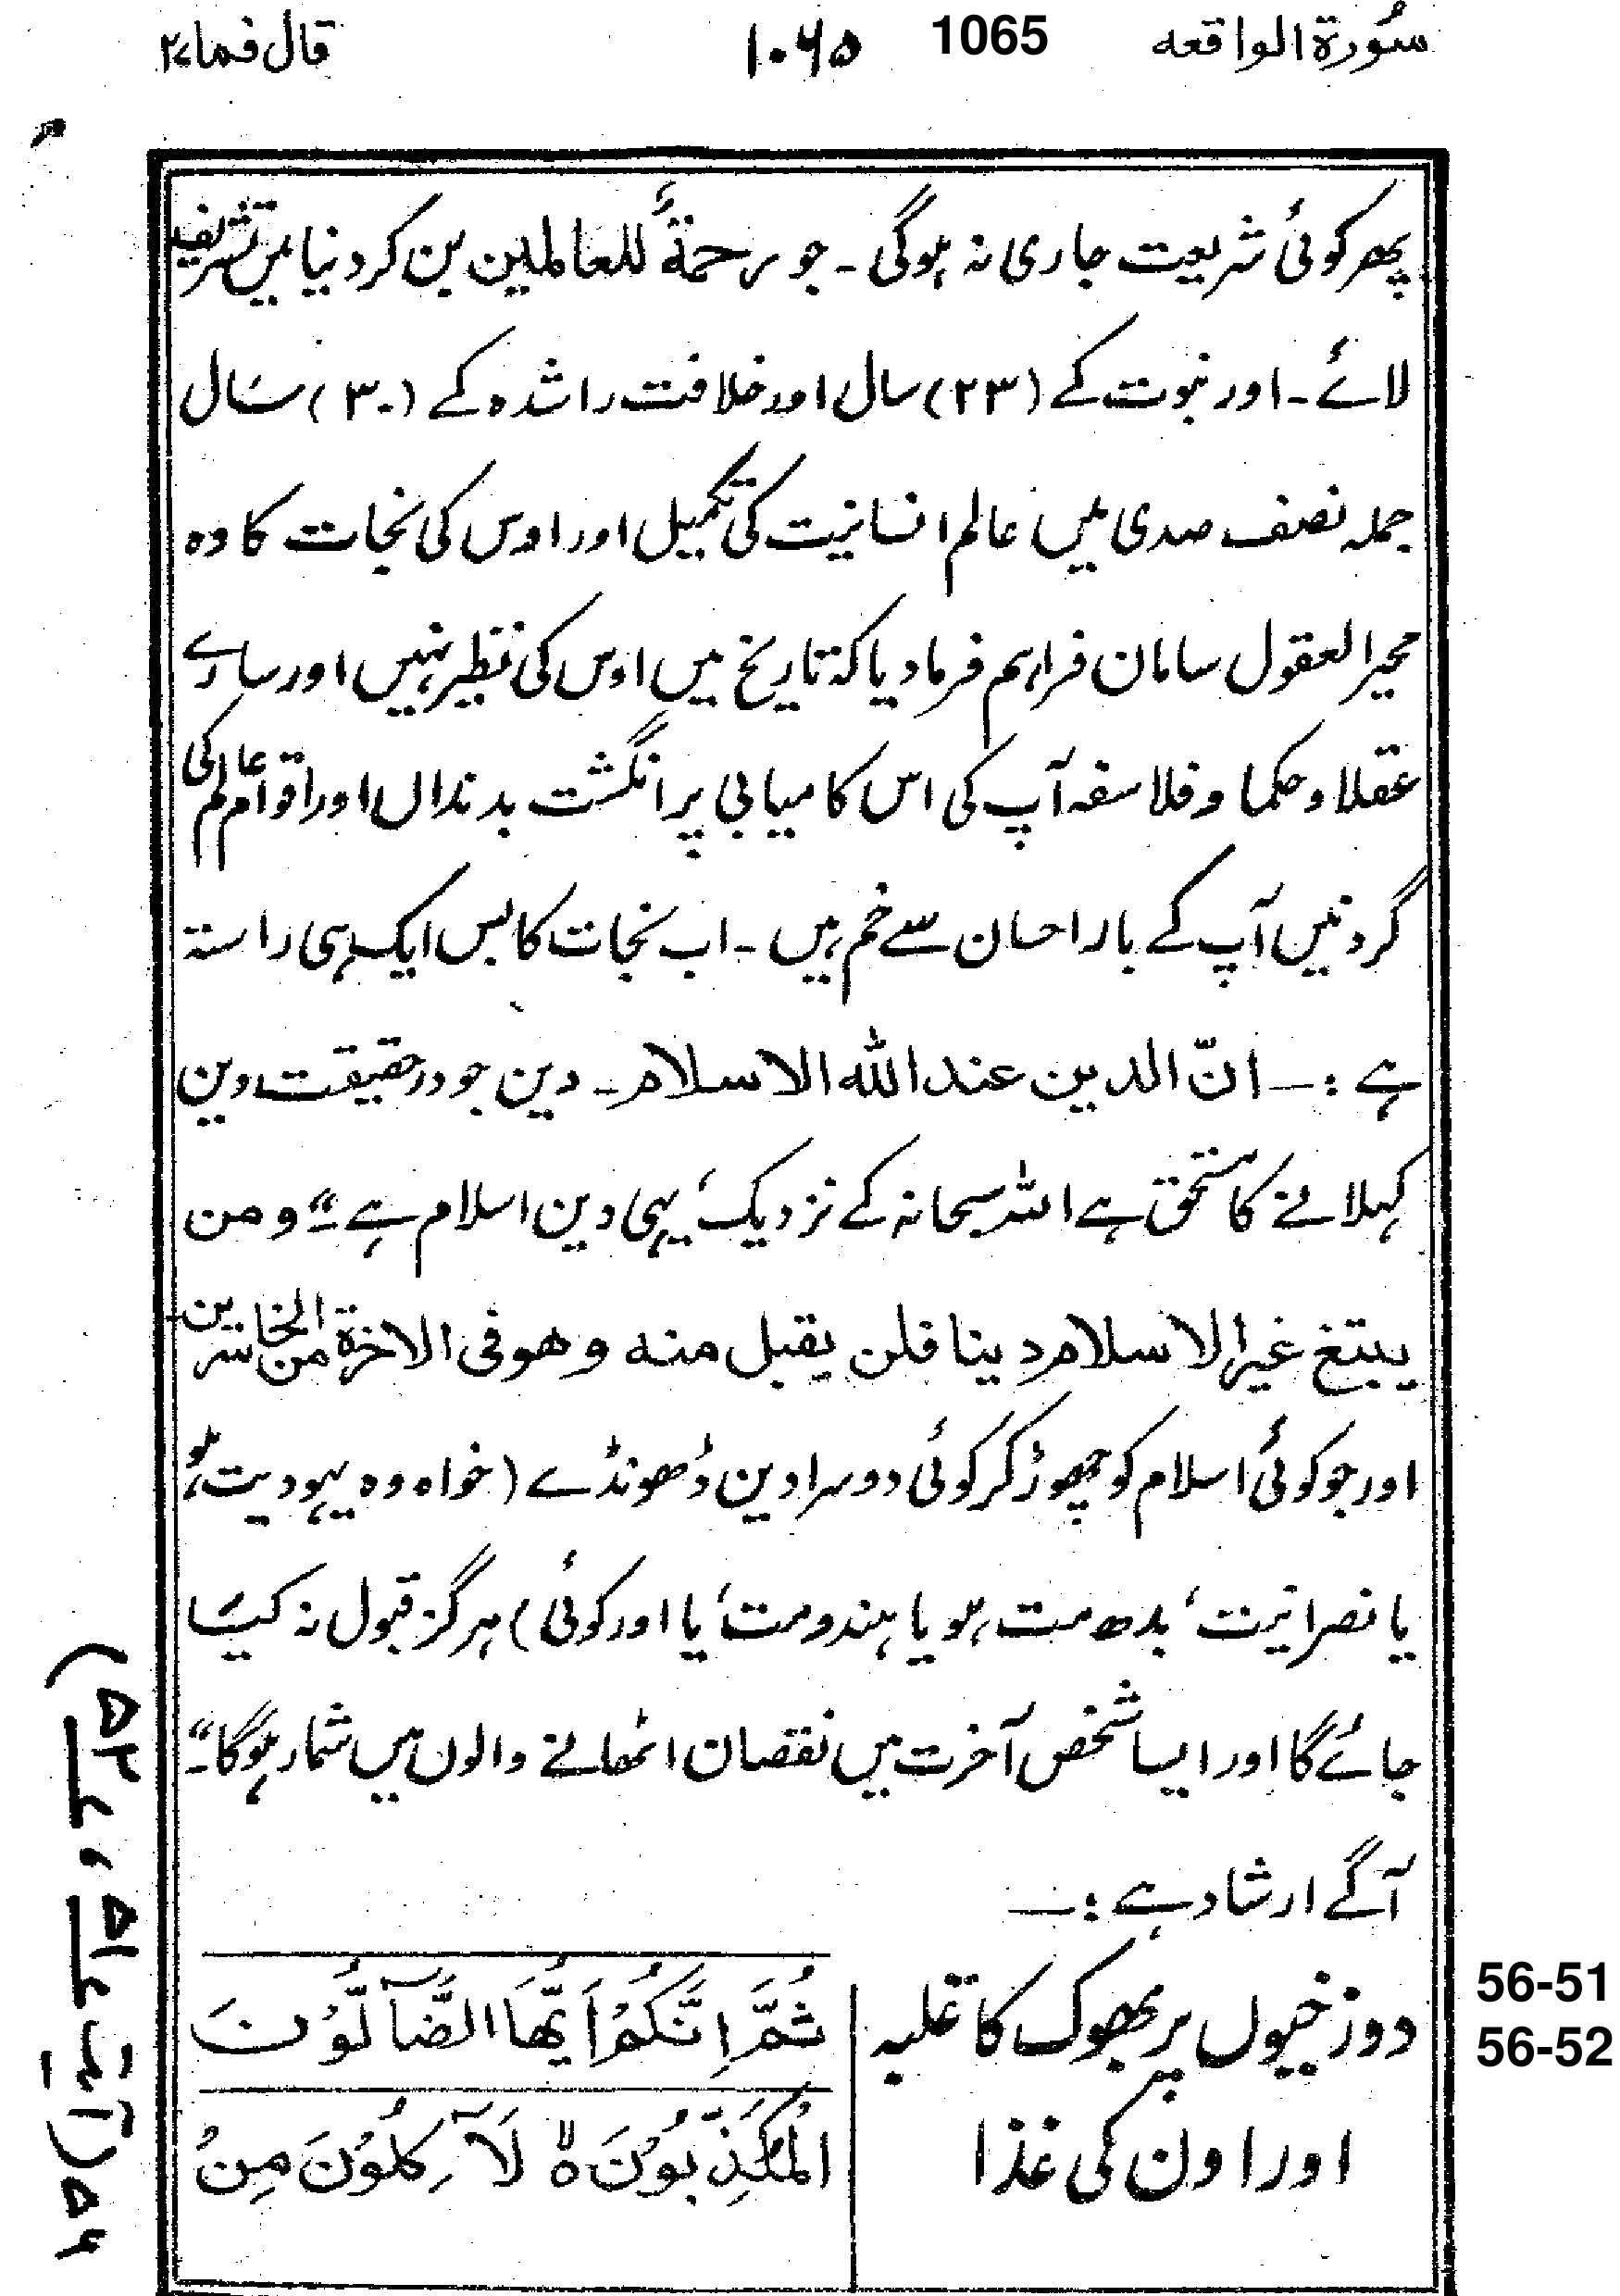 سُورۃ الواقعہ 1065 ۱۰۶۵ قال فما ۲۷
پھر کوئی شریعت جاری نہ ہوگی ۔ جو رحمۃً للعالمین بن کر دنیا میں تشریف
لائے ۔ اور نبوت کے (۲۳) سال اور خلافت راشدہ کے (۳۰) سَال
جملہ نصف صدی میں عالم انسانیت کی تکمیل اور اوس کی نجات کا وہ
محیر العقول سامان فراہم فرمادیا کہ تاریخ میں اوس کی نظیر نہیں اور سارے
عقلا و حکما و فلاسفہ آپ کی اس کامیابی پر انگشت بدنداں اور اقوام عالم کی
گردنیں آپ کے بار احسان سے خم ہیں ۔ اب نجات کا بس ایک ہی راستہ
ہے :۔ انّ الدین عند اللہ الاسلام ۔ دین جو در حقیقت دین
کہلانے کا مستحق ہے اللہ سبحانہ کے نزدیک، یہی دین اسلام ہے ۔" و من
یبتغ غیر الاسلام دینا فلن یقبل منہ و ھو فی الاخرۃ من الخاسرین
اور جو کوئی اسلام کو چھوڑ کر کوئی دوسرا دین ڈھونڈے (خواہ وہ یہودیت ہو
یا نصرانیت، بدھ مت ہو یا ہندو مت، یا اور کوئی) ہرگز قبول نہ کیَا
جائے گا اور ایسا شخص آخرت میں نقصان اٹھانے والوں میں شمار ہوگا ۔"
آگے ارشاد ہے :۔
دوزخیوں پر بھوک کا غلبہ
اور اون کی غذا
ثُمَّ اِنَّکُمْ اَیُّھَا الضَّآلُّوْنَ
الْمُکَذِّبُوْنَ ہ لَاٰکِلُوْنَ مِنْ
56-51
56-52
۵۶ (آیت ۵۱ ، ۵۲)